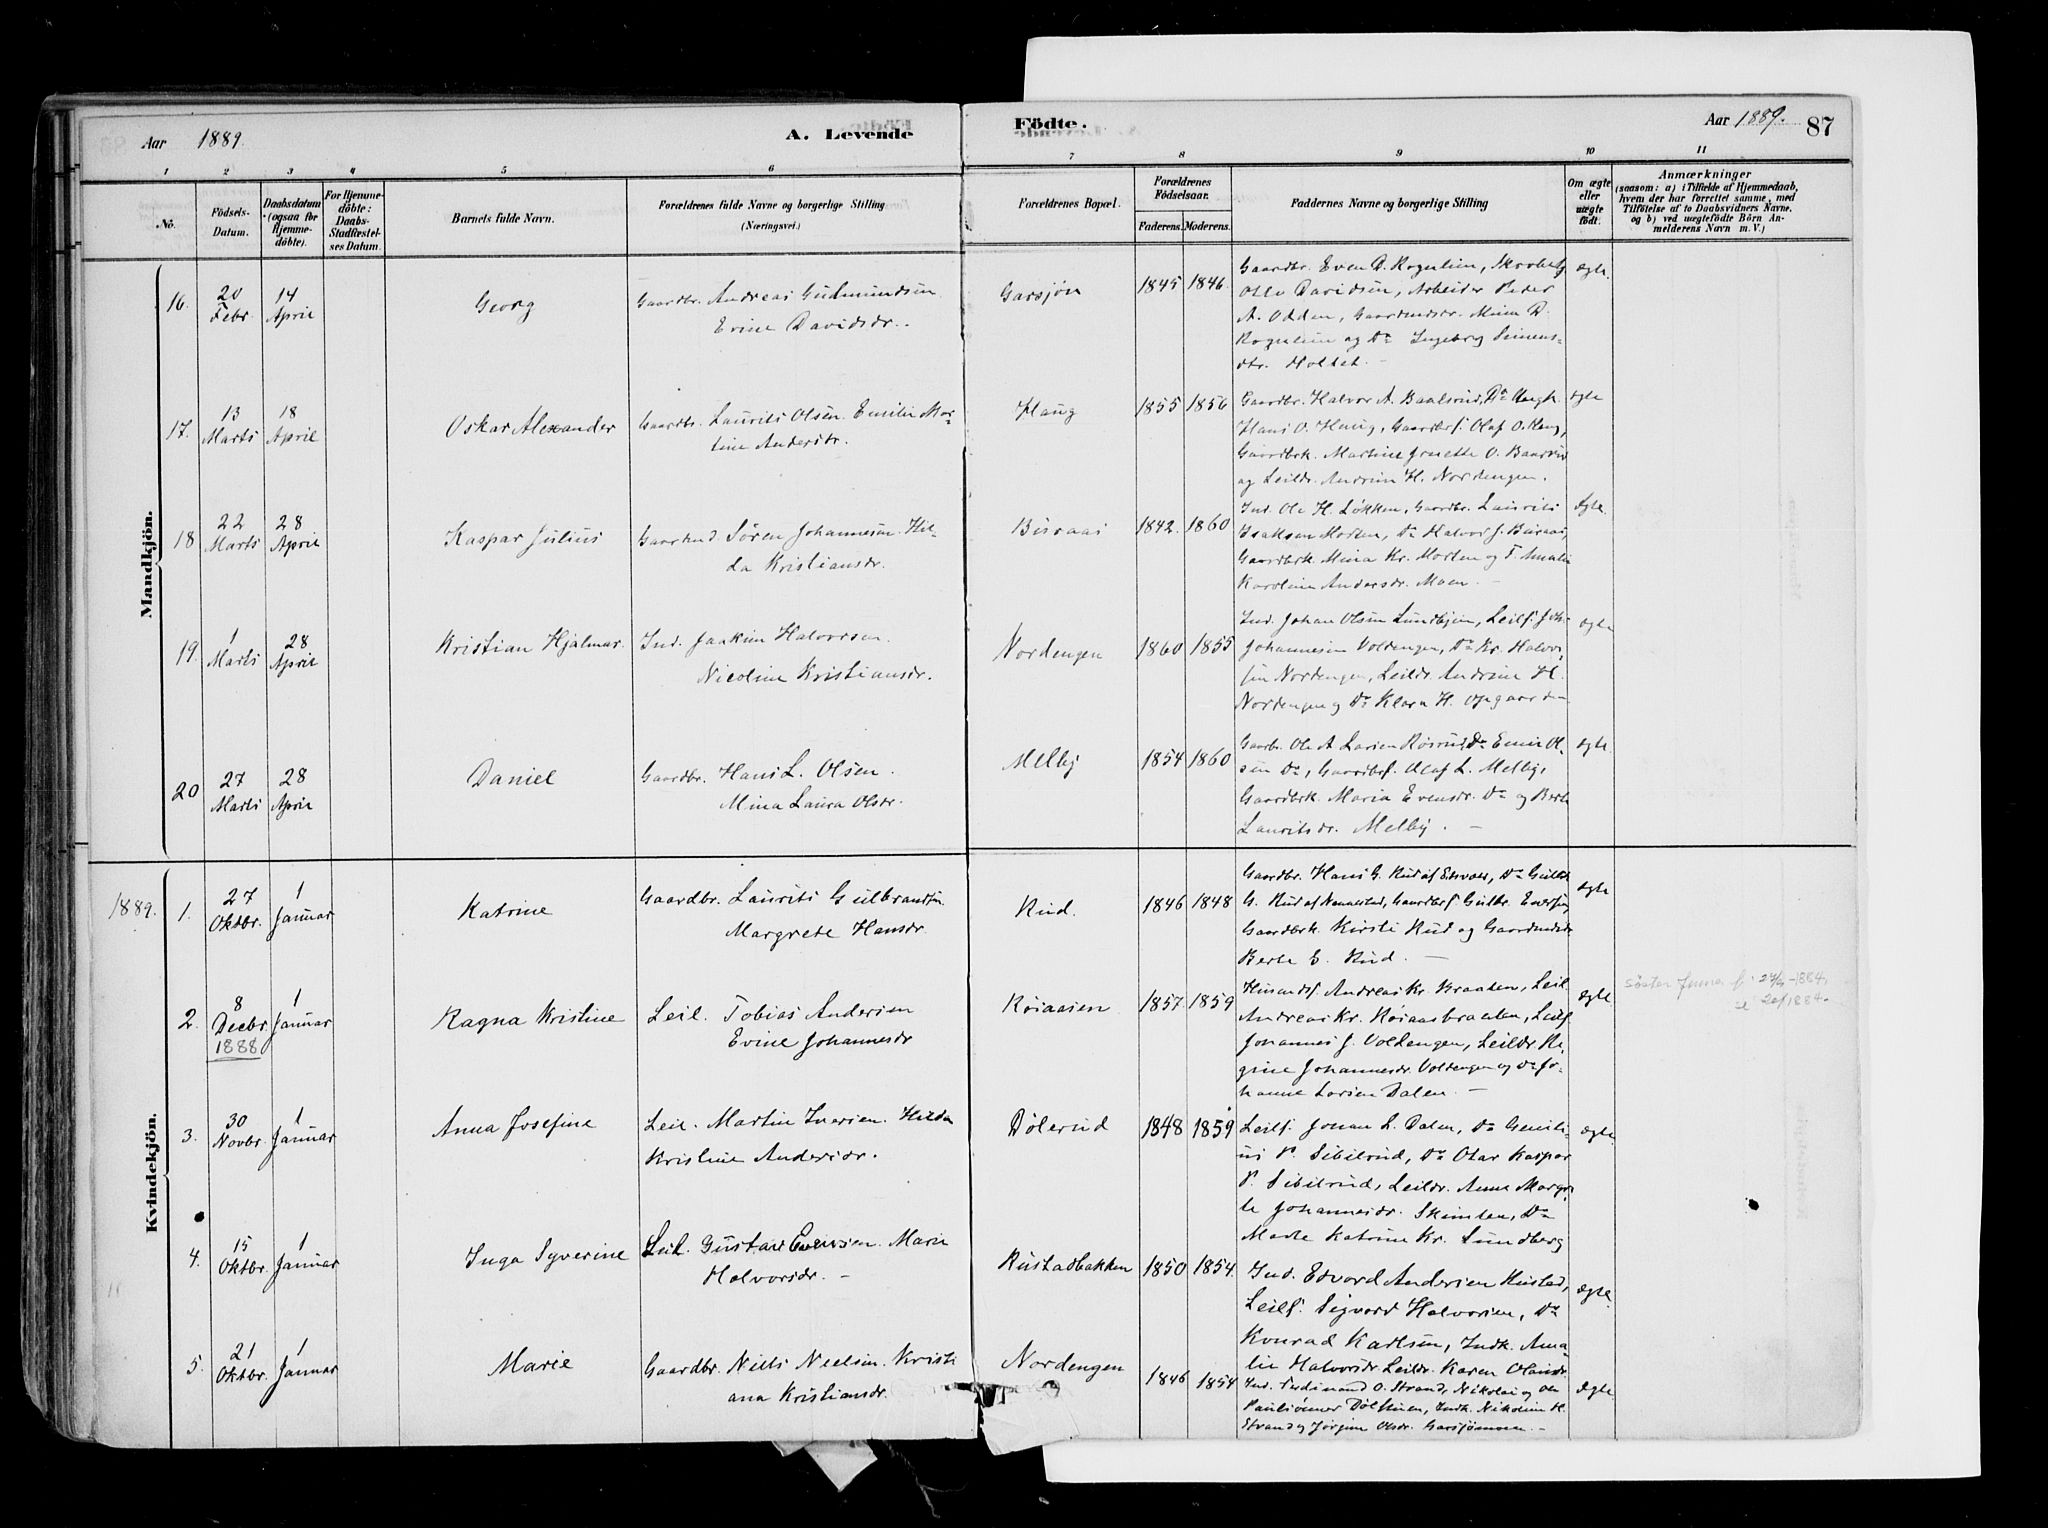 Aar 1889. A. Levende Födte. Aar 1889. 87
1 2 3 4 5 6 7 8 9 10 11
No.
Födsels-
Datum.
Daabsdatum
(ogsaa for
Hjemme-
döbte).
For Hjemme-
döbte:
Daabs-
Stadfæstel-
ses Datum.
Barnets fulde Navn.
Forældrenes fulde Navne og borgerlige Stilling
(Næringsvei.)
Forældrenes Bopæl.
Forældrenes
Födselsaar.
Faderens. Moderens.
Faddernes Navne og borgerlige Stilling
Om ægte
eller
uægte
födt.
Anmærkninger
(saasom: a) i Tilfælde af Hjemmedaab,
hvem der har forrettet samme, med
Tilföielse af to Daabsvidners Navne.
og b) ved uægtefödte Börn An-
melderens Navn m. V.)
Mandkjön.
16. 20 Febr. 14 April
Georg
Gaardbr. Andreas Gudmundsen
Evine Davidsdr.
Garsjøn
1845 1846
Gaardbr. Even D. Rognlien,
Otto Davidsen, Arbeider Peder
A. Odden, Mina D.
Rognlien og Do Ingeborg Simens-
dtr. Holtet. -
ægte
17. 13 Marts 18 April
Oskar Alexander
Gaardbr. Laurits Olsen. Emilie Mar-
tine Andersdr.
Haug
1855 1856
Gaardbr. Halvor A. Baalsrud, Do Ungk.
Hans O. Haug, Gaardbrs. Olaf O. Haug,
Gaardbrk. Martine O.
og Leildr. Andrine H. Nordengen.
ægte
18 22 Marts 28 April
Kaspar Julius
Søren Johannesen. Hil-
da Kristiansdr.
Bisraas
1842. 1860
Ind. Ole H. Løkken, Gaardbr. Laurits
Isaksen Morten, Do Halvor J. Bisraas,
Gaardbrk. Mina Kr. Morten og T. Amalie
Karoline Andersdr. Moen. -
ægte
19. 1 Marts 28 April
Kristian Hjalmar.
Ind. Joakim Halvorsen.
Nicoline Kristiansdr.
Nordengen
1860 1855
Ind. Johan Olsen Lundbyeie, Leils. Joh.
Johannesen Voldengen, Do Kr. Halvor-
sen Nordengen, Leildr. Andrine H.
Nordengen og Do Klara H. Opgaarden
ægte
20 27 Marts 28 April
Daniel
Gaardbr. Hans L. Olsen.
Mina Laura Olsdr.
Melby
1854 1860
Gaardbr. Ole A. Larsen Røisrud, Do Emil Ol-
sen Do, Gaardbrs. Olaf L. Melby,
Gaardbrk. Maria Evensdr. Do og Berte
Lauritsdr. Melby. -
ægte
1889.
Kvindekjön.
1. 27 Oktbr. 1 Januar
Katrine
Gaardbr. Laurits Gulbrandsen
Margrete Hansdr.
Rud.
1846 1848
Gaardbr. Hans G. Rud af Eidsvold, Do Gulbr.
G. Rud af Nannestad, Gaardbrs. Gulbr. Evensen
Gaardbrk. Kirsti Rud og
Berte E. Rud. -
ægte
2. 8 Decbr 1888 1 Januar
Ragna Kristine
Leil. Tobias Andersen
Evine Johannesdr
Røiaasen
1857 1859
Husmds. Andreas Kr. Braaten, Leil.
Andreas Kr. Røiaasbraaten, Leils.
Johannes J. Voldengen, Leildr. Re-
gine Johannesdr. Voldengen og Do Jo-
hanne Larsen Dalen. -
ægte
Søster Jenna f. 24/3-1884,
se 20f 1884.
3. 30 Novbr. 1 Januar
Anna Josefine
Leil. Martin Iversen. Hilda
Kristine Andersdr.
Dølerud
1848 1859
Leils. Johan L. Dalen, Do
P. Sibilrud, Do Otar Kaspar
P. Sibilrud, Leildr. Anne Margre-
te Johannesdr. Skimten, Do
Marte Katrine Kr. Lundberg
ægte
4. 15 Oktbr. 1 Januar
Inga Syverine
Leil. Gustav Evensen. Marie
Halvorsdr. -
Rustadbakken
1850 1854.
Ind. Edvard Andersen Rustad,
Leils. Sigvard Halvorsen, Do
Konrad Karlsen, Indk. Ama-
lie Halvorsdr Leildr. Karen Olausdr.
ægte.
5. 21 Oktbr. 1 Januar
Marie
Gaardbr. Niels Nielsen. Kristi-
ana Kristiansdr.
Nordengen
1846 1854
Ind. Ferdinand O. Strand, Nikolai og
Paulsønner Dølstuen, Indk. Nikoline H.
Strand og Jørgine Olsdr. Garsjømoen. -
ægte